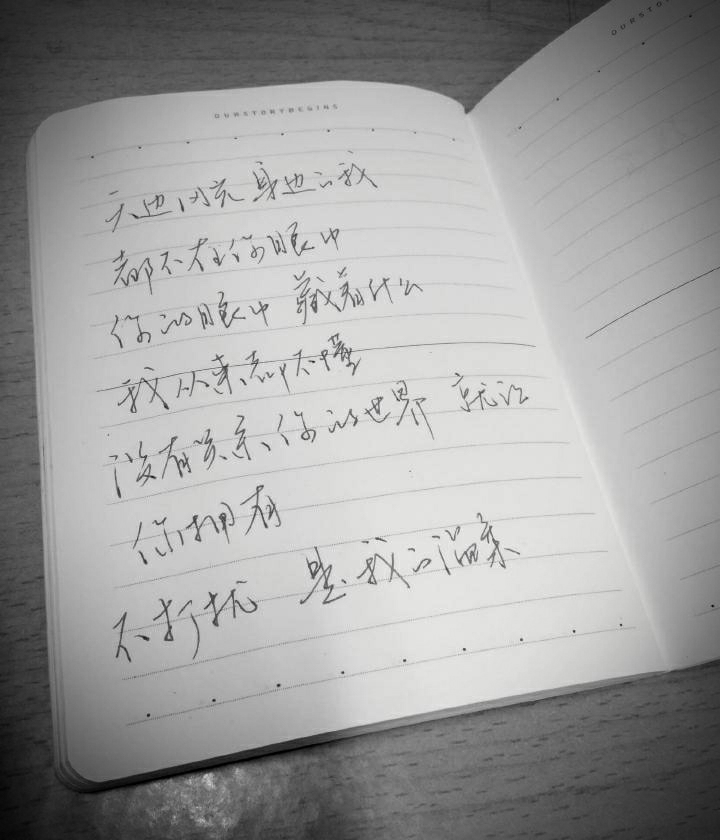 OURSTORYBEGINS
OURSTO
天边闪光 身边的我
都不在你眼中
你的眼中 藏着什么
我从来都不懂
没有关系 你的世界 就让
你拥有
不打扰 是我的温柔